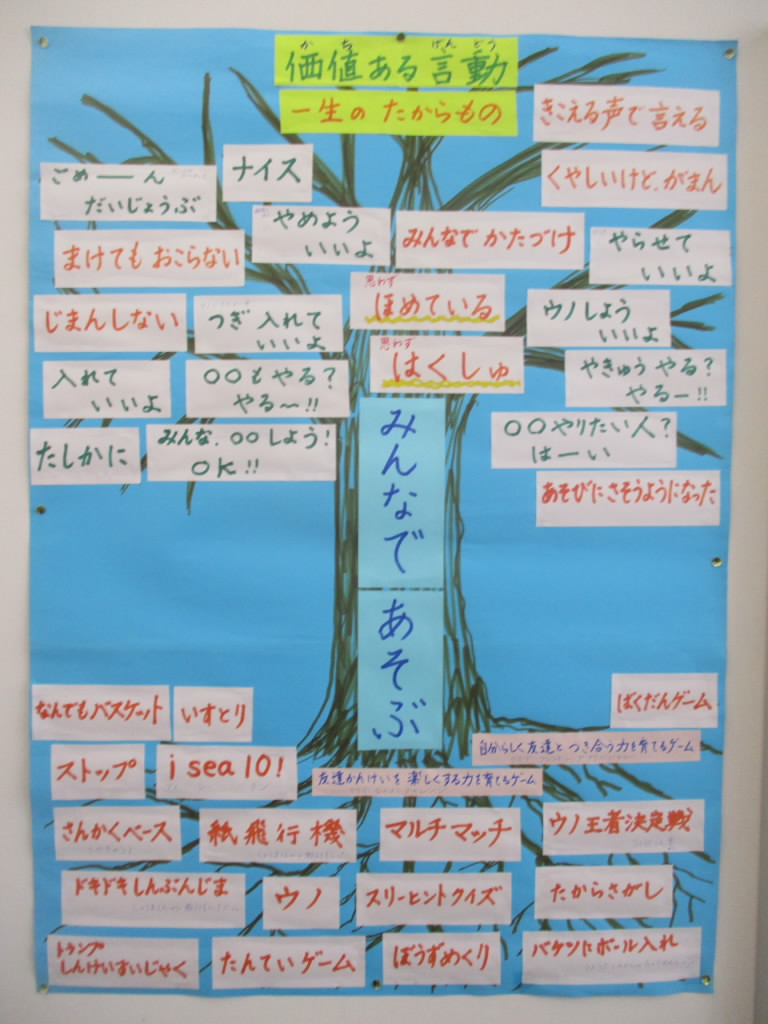 価値ある言動
かち
げんどう
一生の たからもの
きこえる声で言える
ごめーーん
だいじょうぶ
ナイス
くやしいけど、がまん
やめよう
いいよ
みんなで かたづけ
やらせて
いいよ
まけても おこらない
思わず
ほめている
じまんしない
つぎ 入れて
いいよ
ウノしよう
いいよ
思わず
はくしゅ
入れて
いいよ
○○もやる?
やる〜!!
やきゅう やる?
やるー!!
たしかに
みんな、○○しよう!
OK!!
○○やりたい人?
はーい
あそびに さそうようになった
みんなで あそぶ
なんでもバスケット
いすとり
ばくだんゲーム
自分らしく友達と つき合う力を育てるゲーム
ストップ
i sea 10!
友達かんけいを 楽しくする力を育てるゲーム
さんかくベース
紙飛行機
マルチマッチ
ウノ王者決定戦
ドキドキしんぶんじま
ウノ
スリーヒントクイズ
たからさがし
トランプ
しんけいすいじゃく
たんていゲーム
ぼうずめくり
バケツにボール入れ